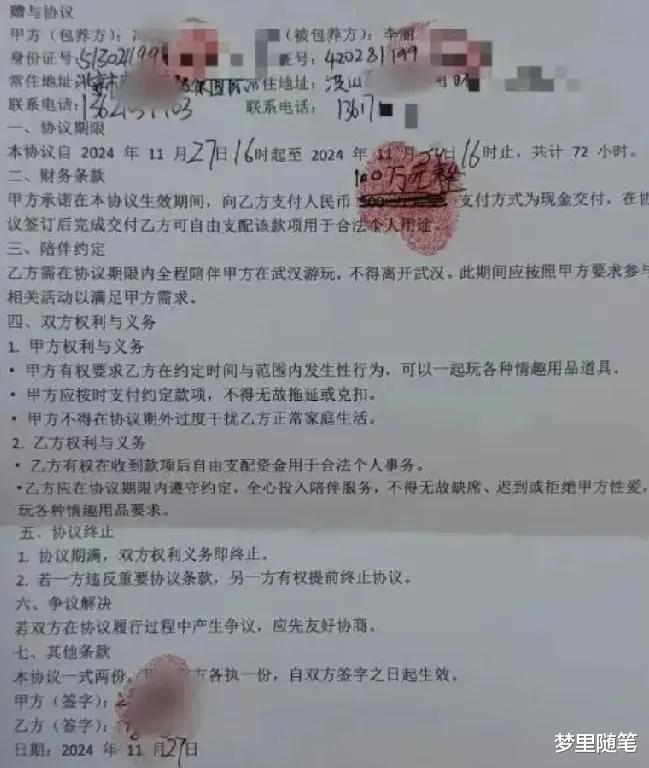 赠与协议
甲方（包养方）： （被包养方）：李丽
身份证号：51302199 证号：420281199
常住地址： 常住地址：
联系电话： 联系电话：13617
一、协议期限
本协议自 2024 年 11 月27日16时起至 2024 年 11 月 日16时止，共计 72 小时。
二、财务条款 100万元整
甲方承诺在本协议生效期间，向乙方支付人民币 支付方式为现金交付，在协
议签订后完成交付乙方可自由支配该款项用于合法个人用途
三、陪伴约定
乙方需在协议期限内全程陪伴甲方在武汉游玩，不得离开武汉。此期间应按照甲方要求参与
相关活动以满足甲方需求。
四、双方权利与义务
1. 甲方权利与义务
• 甲方有权要求乙方在约定时间与范围内发生性行为，可以一起玩各种情趣用品道具。
• 甲方应按时支付约定款项，不得无故拖延或克扣。
• 甲方不得在协议期外过度干扰乙方正常家庭生活。
2. 乙方权利与义务
• 乙方有权在收到款项后自由支配资金用于合法个人事务。
•乙方应在协议期限内遵守约定，全心投入陪伴服务，不得无故缺席、迟到或拒绝甲方性爱，
玩各种情趣用品要求。
五、协议终止
1. 协议期满，双方权利义务即终止。
2. 若一方违反重要协议条款，另一方有权提前终止协议。
六、争议解决
若双方在协议履行过程中产生争议，应先友好协商。
七、其他条款
本协议一式两份， 方各执一份，自双方签字之日起生效。
甲方（签字）：
乙方（签字）：
日期：2024 年 11 月27日
梦里随笔